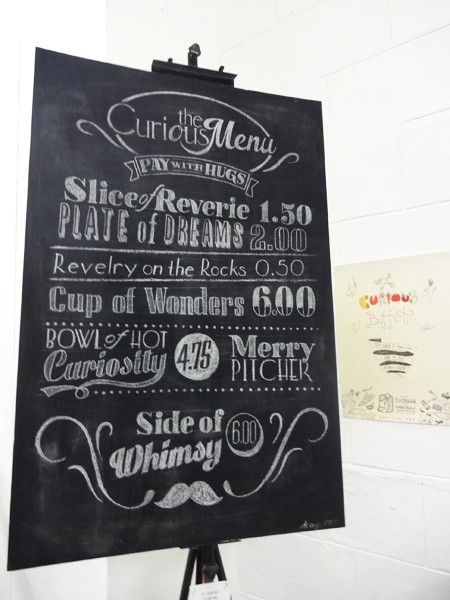 the
Curious Menu
PAY WITH HUGS
Slice of Reverie 1.50
PLATE of DREAMS 2.00
Revelry on the Rocks 0.50
Cup of Wonders 6.00
BOWL of HOT
Curiosity 4.75
Merry
PITCHER
Side of
Whimsy 6.00
CURIOUS
Buffet